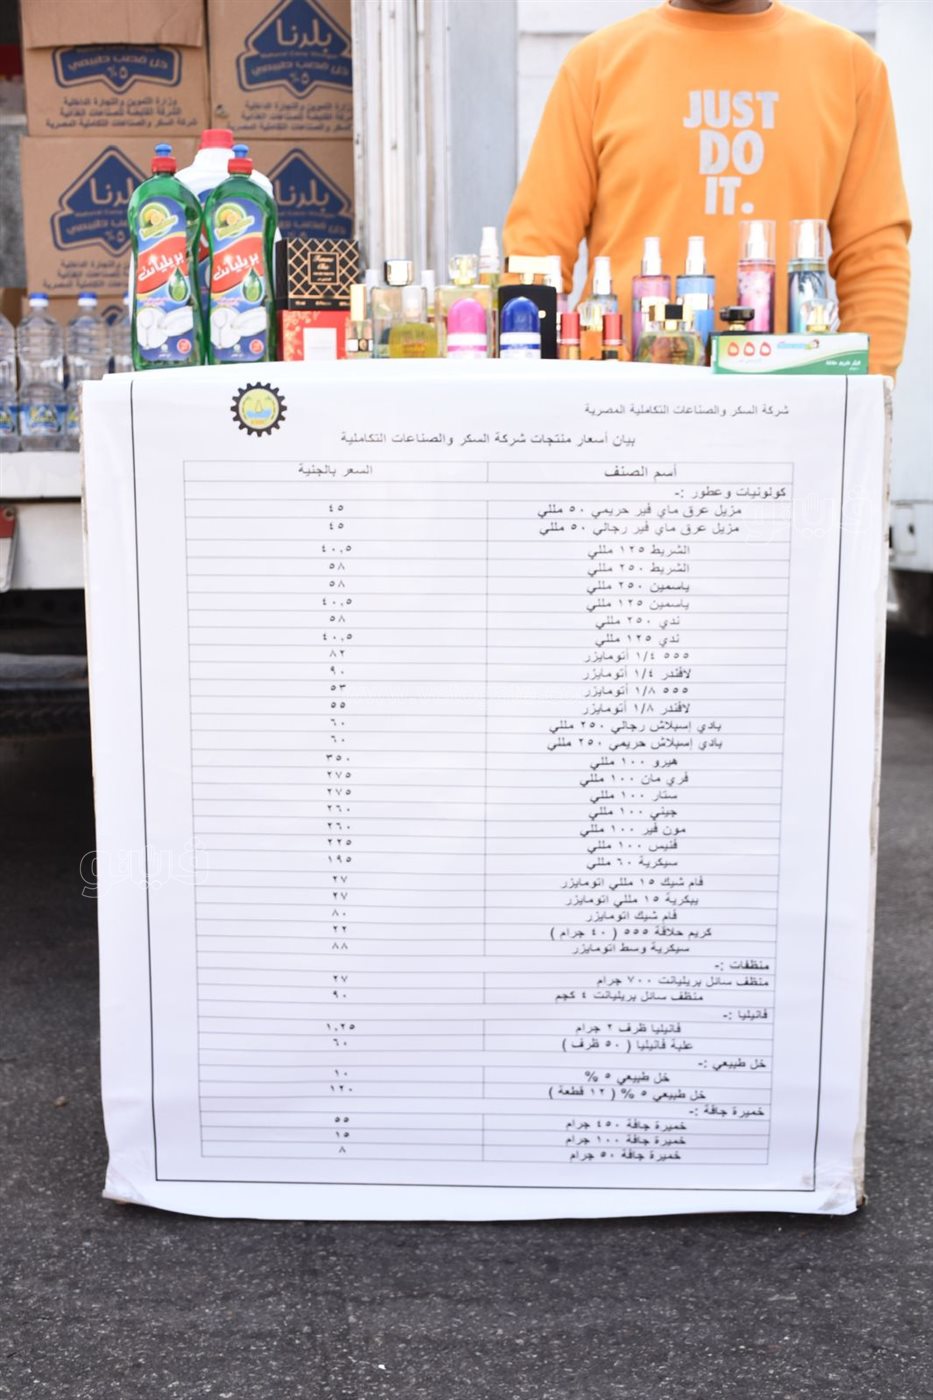 بلرنا
Natural Cane Vinegar
خل قصب طبيعي
٥%
وزارة التموين والتجارة الداخلية
الشركة القابضة للصناعات الغذائية
شركة السكر والصناعات التكاملية المصرية
بلرنا
خل قصب طبيعي
٥%
وزارة التموين والتجارة الداخلية
الشركة القابضة للصناعات الغذائية
شركة السكر والصناعات التكاملية المصرية
بلرنا
بلرنا
JUST
DO
IT.
بريليانت
بريليانت
٥٥٥
شركة السكر والصناعات التكاملية المصرية
بيان أسعار منتجات شركة السكر والصناعات التكاملية
أسم الصنف السعر بالجنية
كولونيات وعطور :-
مزيل عرق ماي فير حريمي ٥٠ مللي ٤٥
مزيل عرق ماي فير رجالي ٥٠ مللي ٤٥
الشريط ١٢٥ مللي ٤٠,٥
الشريط ٢٥٠ مللي ٥٨
ياسمين ٢٥٠ مللي ٥٨
ياسمين ١٢٥ مللي ٤٠,٥
ندي ٢٥٠ مللي ٥٨
ندي ١٢٥ مللي ٤٠,٥
٥٥٥ ١/٤ أتومايزر ٨٢
لافندر ١/٤ أتومايزر ٩٠
٥٥٥ ١/٨ أتومايزر ٥٣
لافندر ١/٨ أتومايزر ٥٥
بادي إسبلاش رجالي ٢٥٠ مللي ٦٠
بادي إسبلاش حريمي ٢٥٠ مللي ٦٠
هيرو ١٠٠ مللي ٣٥٠
فري مان ١٠٠ مللي ٢٧٥
ستار ١٠٠ مللي ٢٧٥
جيني ١٠٠ مللي ٢٦٠
مون فير ١٠٠ مللي ٢٦٠
فنيس ١٠٠ مللي ٢٢٥
سيكرية ٦٠ مللي ١٩٥
فام شيك ١٥ مللي اتومايزر ٢٧
بيكرية ١٥ مللي اتومايزر ٢٧
فام شيك اتومايزر ٨٠
كريم حلاقة ٥٥٥ ( ٤٠ جرام ) ٢٢
سيكرية وسط اتومايزر ٨٨
منظفات :-
منظف سائل بريليانت ٧٠٠ جرام ٢٧
منظف سائل بريليانت ٤ كجم ٩٠
فانيليا :-
فانيليا ظرف ٢ جرام ١,٢٥
علبة فانيليا ( ٥٠ ظرف ) ٦٠
خل طبيعي :-
خل طبيعي ٥ % ١٠
خل طبيعي ٥ % ( ١٢ قطعة ) ١٢٠
خميرة جافة :-
خميرة جافة ٤٥٠ جرام ٥٥
خميرة جافة ١٠٠ جرام ١٥
خميرة جافة ٥٠ جرام ٨
فيتو
فيتو